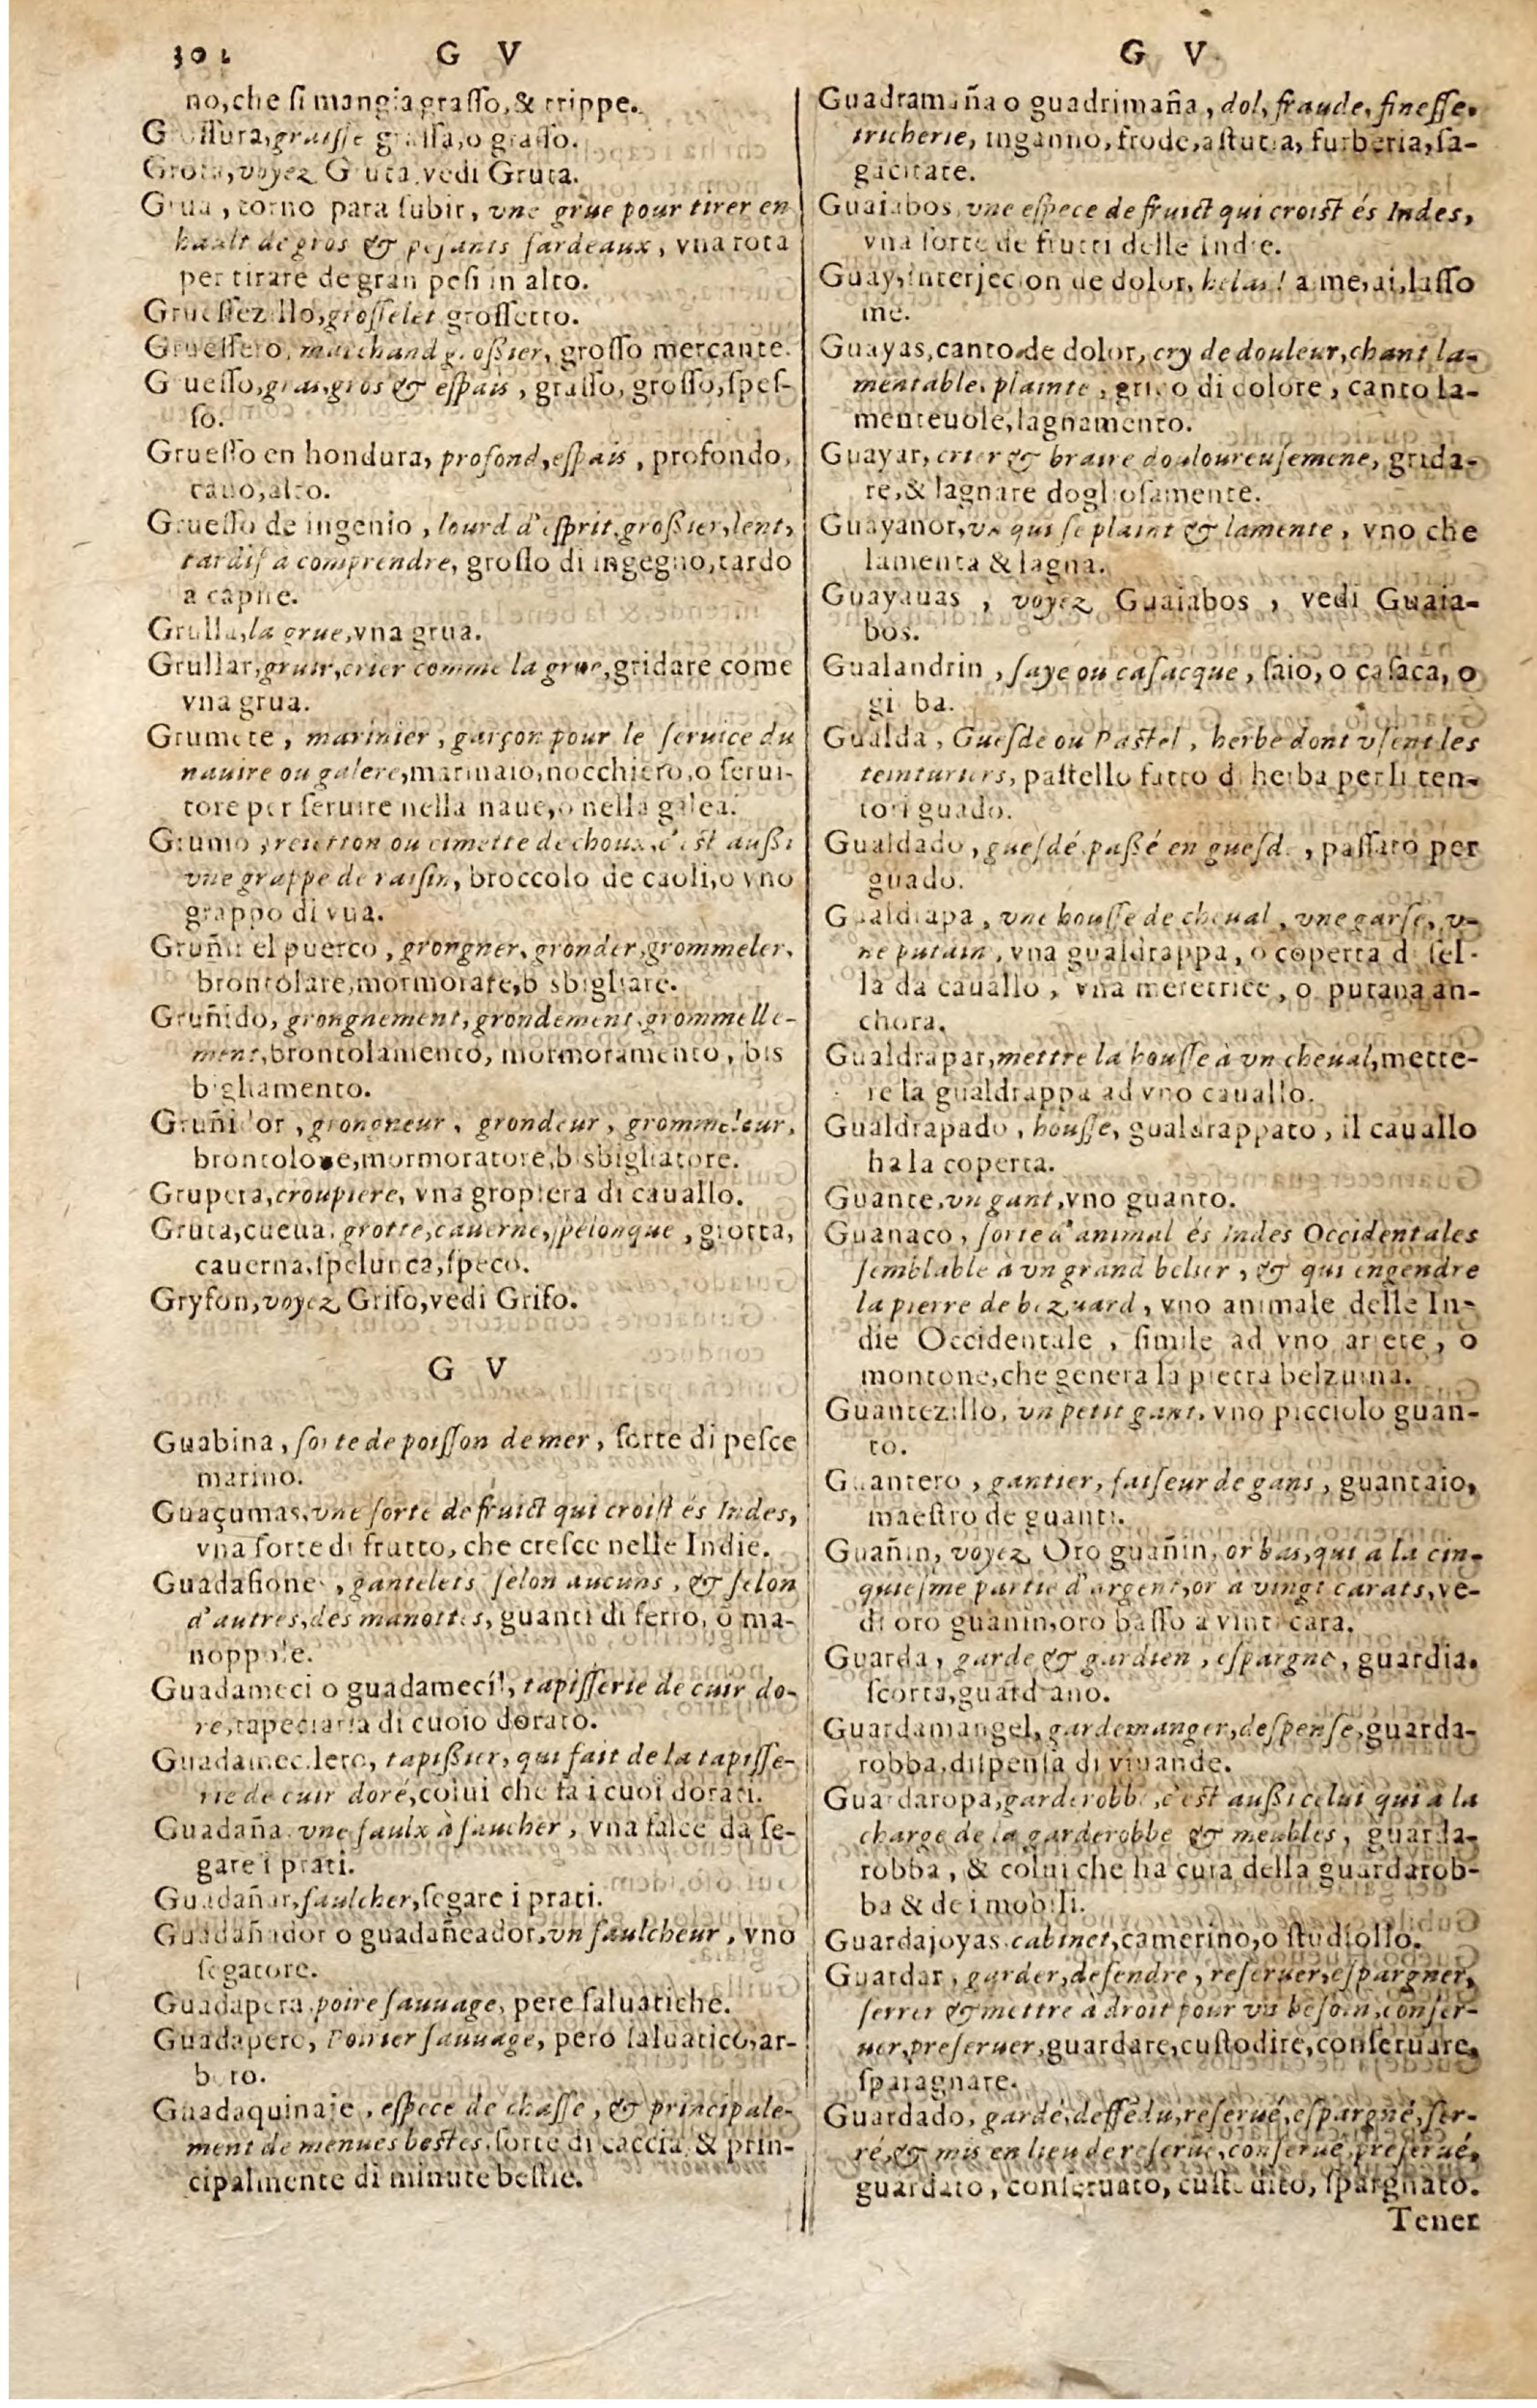 302 G V
no,che ſi mangia graſſo,& trippe.
Groſſura,graiſſe graſſa,o graſſo.
Grota,voyez Gruta.vedi Gruta.
Grua, torno para ſubir, vne grue pour tirer en
hault de gros & peſants fardeaux, vna rota
per tirare de gran peſi in alto.
Grueſſezillo,groſſelet groſſetto.
Grueſſero, marchand großier, groſſo mercante.
Grueſſo,gras,gros & eſpais, graſſo, groſſo,ſpeſ-
ſo.
Grueſſo en hondura, profond,eſpais, profondo,
cauo,alto.
Grueſſo de ingenio, lourd d'eſprit,großier,lent,
tardif a comprendre, groſſo di ingegno,tardo
a capire.
Grulla,la grue,vna grua.
Grullar,gruir,crier comme la grue,gridare come
vna grua.
Grumete, marinier, garçon pour le ſeruice du
nauire ou galere,marinaio,nocchiero,o ſerui-
tore per ſeruire nella naue,o nella galea.
Grumo, reietton ou cimette de choux,c'eſt außi
vne grappe de raiſin, broccolo de caoli,o vno
grappo di vua.
Gruñir el puerco, grongner, gronder,grommeler,
brontolare,mormorare,bisbigliare.
Gruñido, grongnement,grondement,grommelle-
ment,brontolamento, mormoramento, bis
bigliamento.
Gruñidor, grongneur, grondeur, grommeleur,
brontolore,mormoratore,bisbigliatore.
Grupera,croupiere, vna gropiera di cauallo.
Gruta,cueua, grotte,cauerne,ſpelonque, grotta,
cauerna,ſpelunca,ſpeco.
Gryfon,voyez Grifo,vedi Grifo.
G V
Guabina, ſorte de poiſſon de mer, ſorte di peſce
marino.
Guaçumas,vne ſorte de fruict qui croiſt és Indes,
vna ſorte di frutto, che creſce nelle Indie.
Guadafiones, gantelets ſelon aucuns, & ſelon
d'autres,des manottes, guanti di ferro, o ma-
noppole.
Guadameci o guadamecil, tapiſſerie de cuir do-
re,tapeciaria di cuoio dorato.
Guadamecilero, tapißier, qui fait de la tapiſſe-
rie de cuir doré,colui che fa i cuoi dorati.
Guadaña vne faulx à faucher, vna falce da ſe-
gare i prati.
Guadañar,faulcher,ſegare i prati.
Guadañador o guadañeador,vn faulcheur, vno
ſegatore.
Guadapera,poire ſauuage, pere ſaluatiche.
Guadapero, Poirier ſauuage, pero ſaluatico,ar-
boro.
Guadaquinaje, eſpece de chaſſe, & principale-
ment de menues beſtes,ſorte di caccia & prin-
cipalmente di minute beſtie.
G V
Guadramaña o guadrimaña, dol, fraude, fineſſe,
tricherie, inganno, frode,aſtutia, furberia,ſa-
gacitate.
Guaiabos vne eſpece de fruict qui croiſt és Indes,
vna ſorte de frutti delle Indie.
Guay,interjecion de dolor, helas! a me,ai,laſſo
me.
Guayas,canto de dolor, cry de douleur,chant la-
mentable, plainte, grido di dolore, canto la-
menteuole,lagnamento.
Guayar, crier & braire douloureuſemene, grida-
re,& lagnare doglioſamente.
Guayanor,vn qui ſe plaint & lamente, vno che
lamenta & lagna.
Guayauas, voyez Guaiabos, vedi Guaia-
bos.
Gualandrin, ſaye ou caſacque, ſaio, o caſaca, o
giuba.
Gualda, Gueſde ou Paſtel, herbe dont vſent les
teinturiers, paſtello fatto di herba per li ten-
tori guado.
Gualdado, gueſdé paßé en gueſde, paſſato per
guado.
Gualdrapa, vne houſſe de cheual, vne garſe, v-
ne putain, vna gualdrappa, o coperta di ſel-
la da cauallo, vna meretrice, o putana an-
chora.
Gualdrapar,mettre la houſſe à vn cheual,mette-
re la gualdrappa ad vno cauallo.
Gualdrapado, houſſe, gualdrappato, il cauallo
ha la coperta.
Guante,vn gant,vno guanto.
Guanaco, ſorte d'animal és Indes Occidentales
ſemblable à vn grand belier, & qui engendre
la pierre de bezuard, vno animale delle In-
die Occidentale, ſimile ad vno ariete, o
montone,che genera la pietra belzuina.
Guantezillo, vn petit gant, vno picciolo guan-
to.
Guantero, gantier, faiſeur de gans, guantaio,
maeſtro de guanti.
Guañin, voyez Oro guañin, or bas,qui a la cin-
quieſme partie d'argent,or à vingt carats,ve-
di oro guanin,oro baſſo a vinti cara.
Guarda, garde & gardien, eſpargne, guardia,
ſcorta,guardiano.
Guardamangel, gardemanger,deſpenſe,guarda-
robba,diſpenſa di viuande.
Guardaropa,garderobbe,c'eſt außi celui qui a la
charge de la garderobbe & meubles, guarda-
robba, & colui che ha cura della guardarob-
ba & de i mobili.
Guardajoyas cabinet,camerino,o ſtudiollo.
Guardar, garder,defendre, reſeruer,eſpargner,
ſerrer & mettre à droit pour vn beſoin,conſer-
uer,preſeruer,guardare,cuſtodire,conſeruare,
ſparagnare.
Guardado, gardé,deffēdu,reſerué,eſpargné,ſer-
ré,& mis en lieu de reſerue,conſerué,preſerué,
guardato, conſeruato, cuſtodito, ſpargnato.
Tener